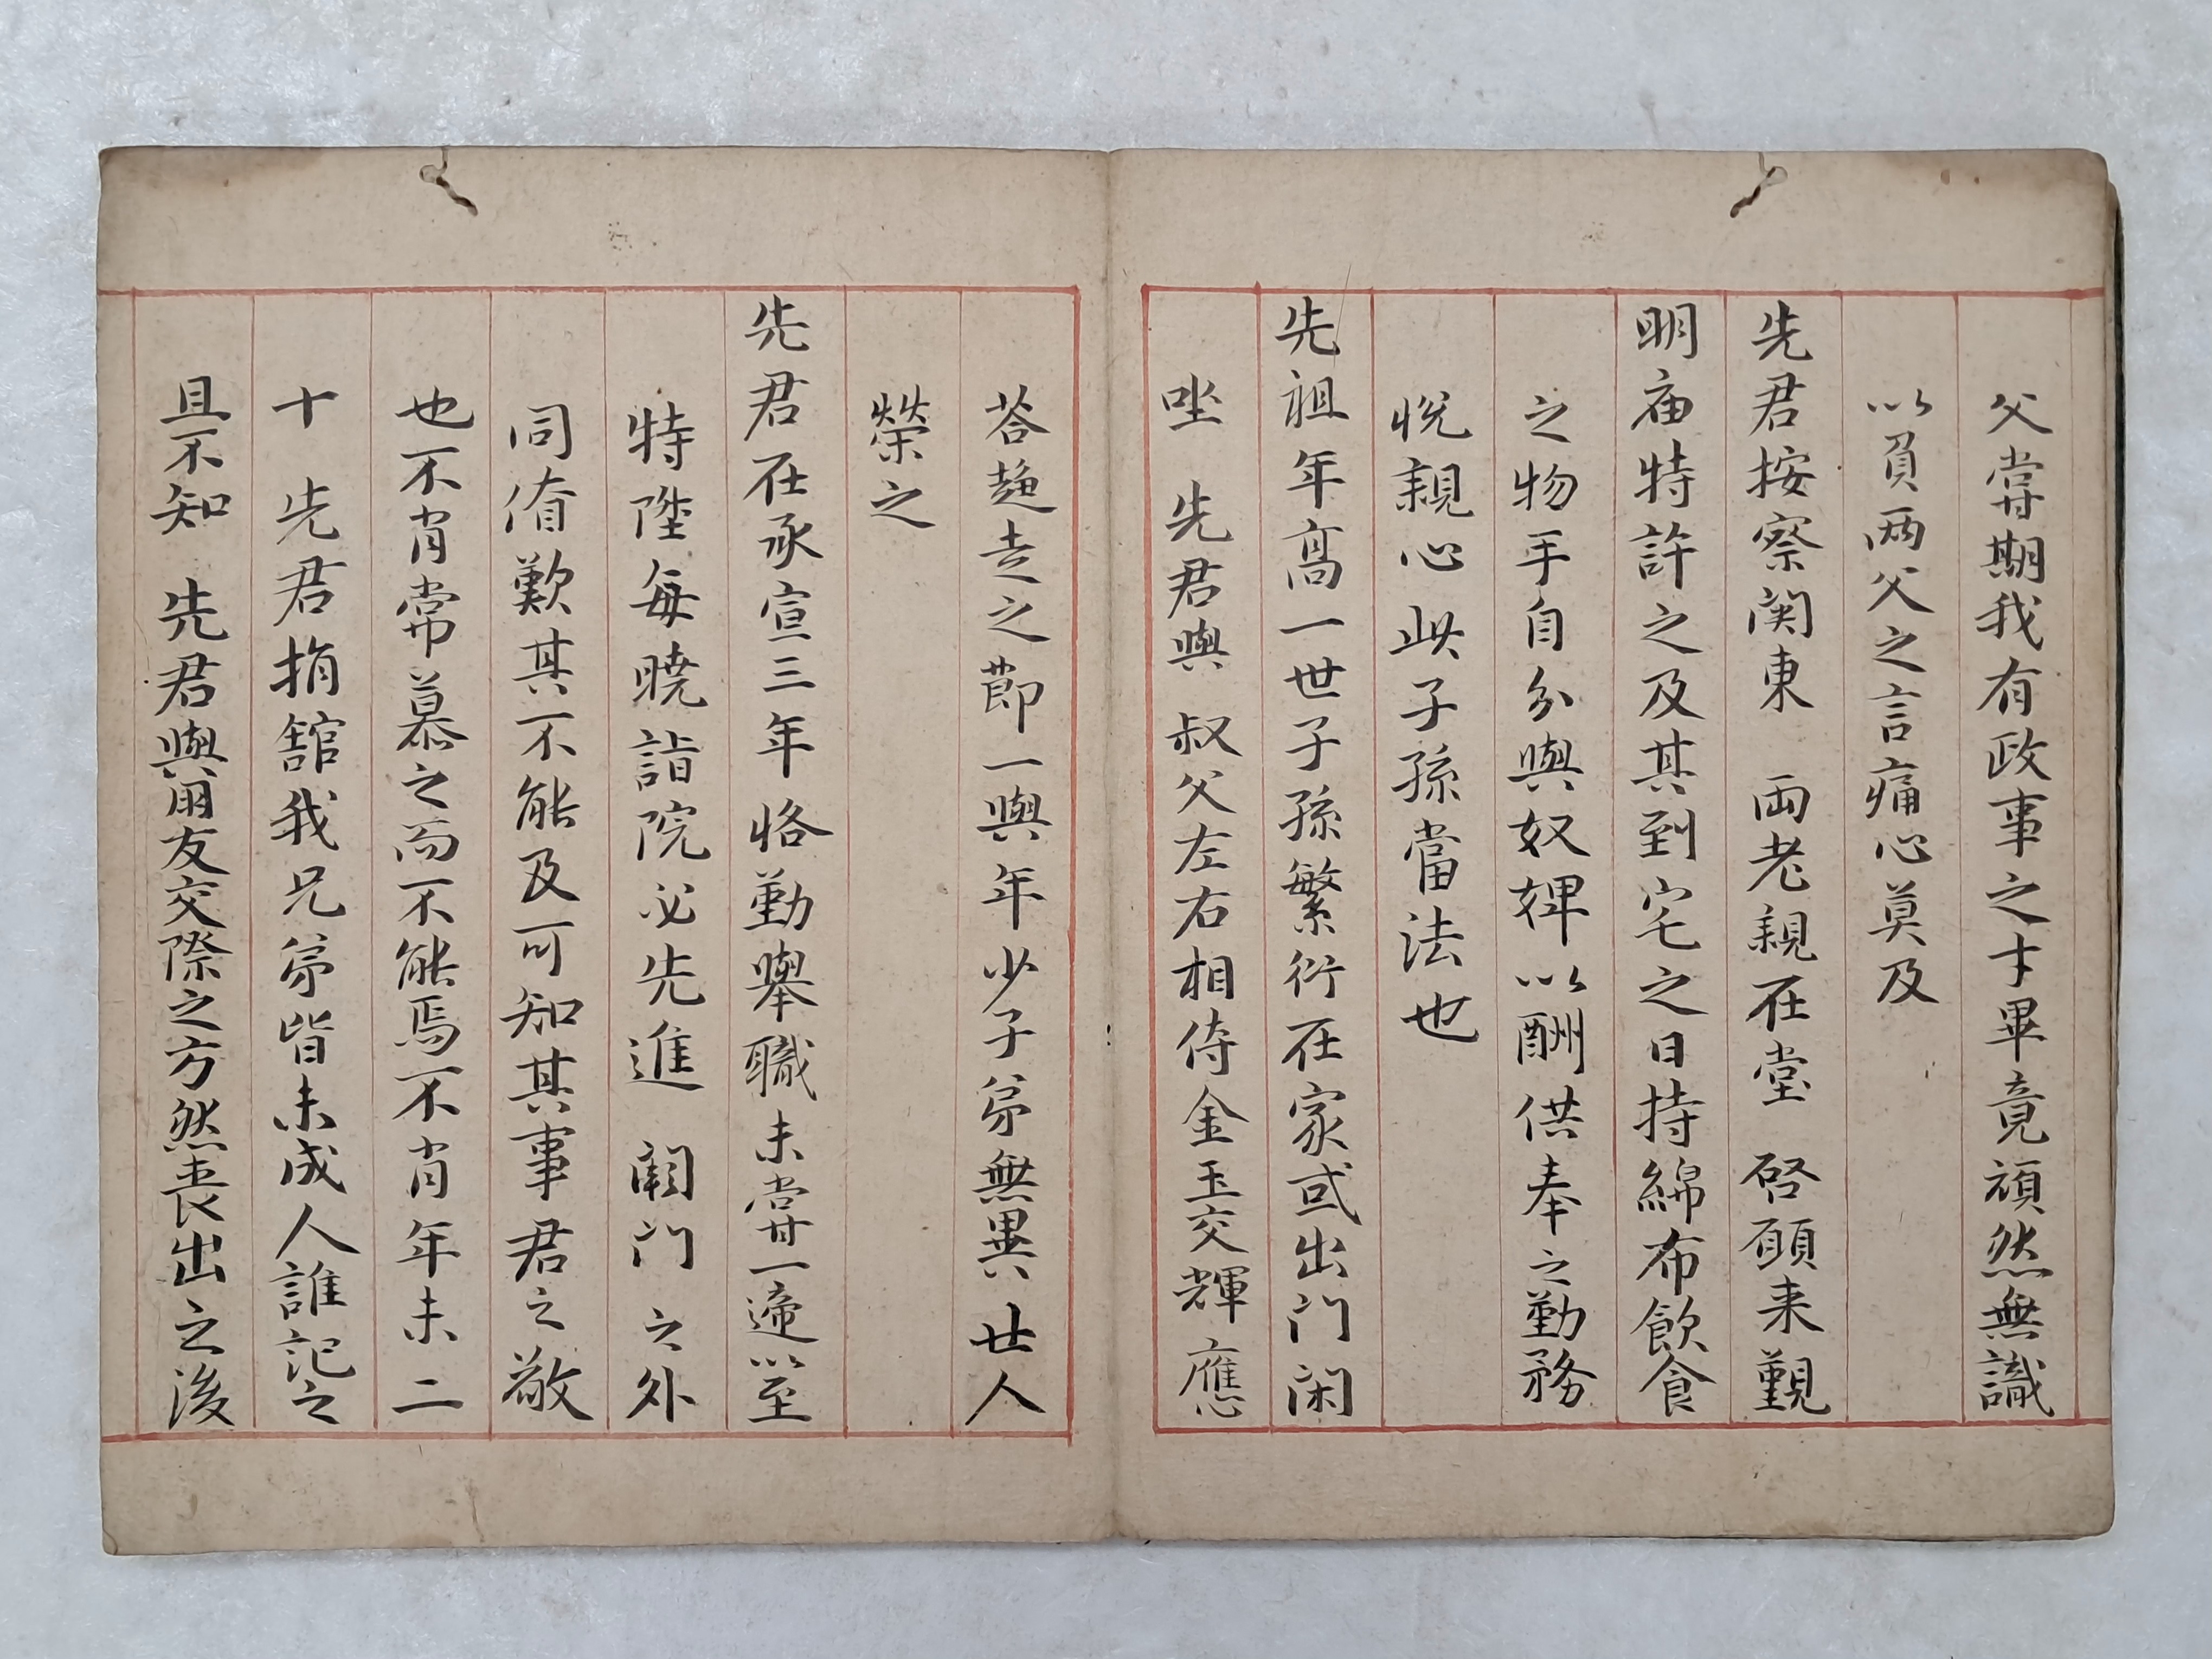 父嘗期我有政事之才畢竟頑然無識
以負兩父之言痛心莫及
先君按察関東 両老親在堂 啓願来覲
明庙特許之及其到宅之日持綿布飮食
之物手自分與奴婢以酬供奉之勤務
悅親心此子孫當法也
先祖年高一世子孫繁衍在家或出門閑
坐 先君與 叔父左右相侍金玉交輝應
荅趍走之節一與年少子弟無異世人
榮之
先君在承宣三年恪勤舉職未嘗一遞以至
特陞每曉詣院必先進 闕門之外
同僚歎其不能及可知其事君之敬
也不肖常慕之而不能焉不肖年未二
十 先君捐舘我兄弟皆未成人誰記之
且不知 先君與朋友交際之方然喪出之後